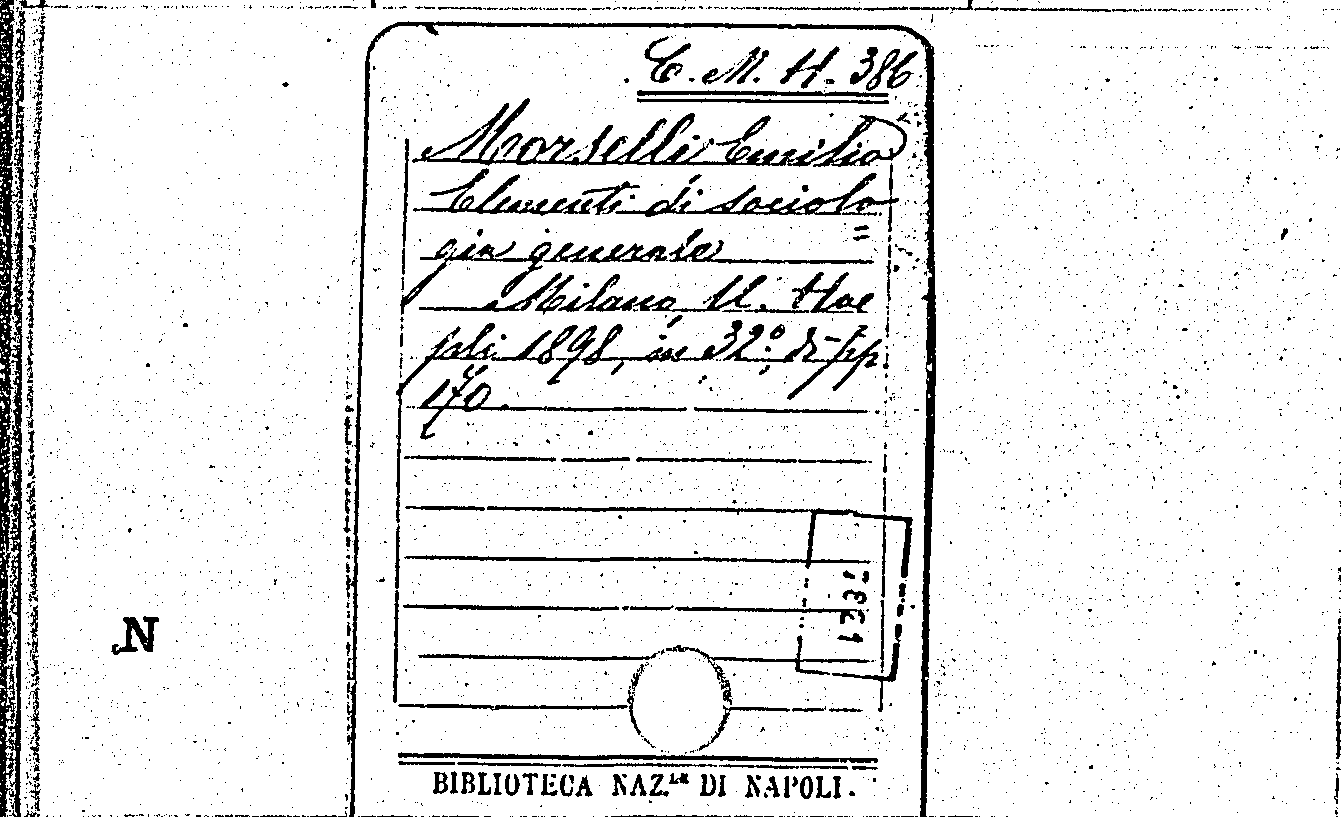 C. M. H. 386
Morselli Emilio
Elementi di sociolo
gia generale
Milano, U. Hoe
pli 1898, in 32º, di pp
170.
N
BIBLIOTECA NAZ.LE DI NAPOLI.